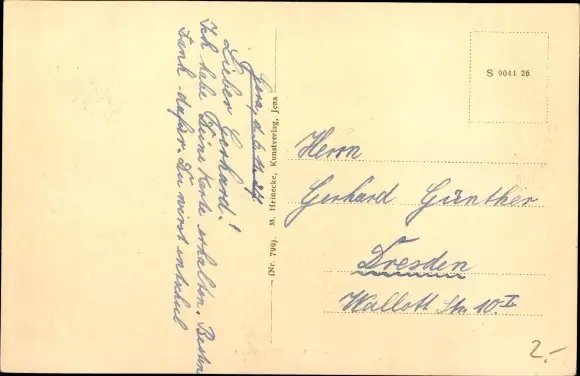 Jena, d.
Lieber Gerhard!
Ich habe Deine Karte erhalten. Besten
Dank dafür. Du wirst
(Nr. 796) M. Heinecke, Kunstverlag, Jena
S 0044 26
Herrn
Gerhard Günther
Dresden
Wallott Str. 10.I
2.-